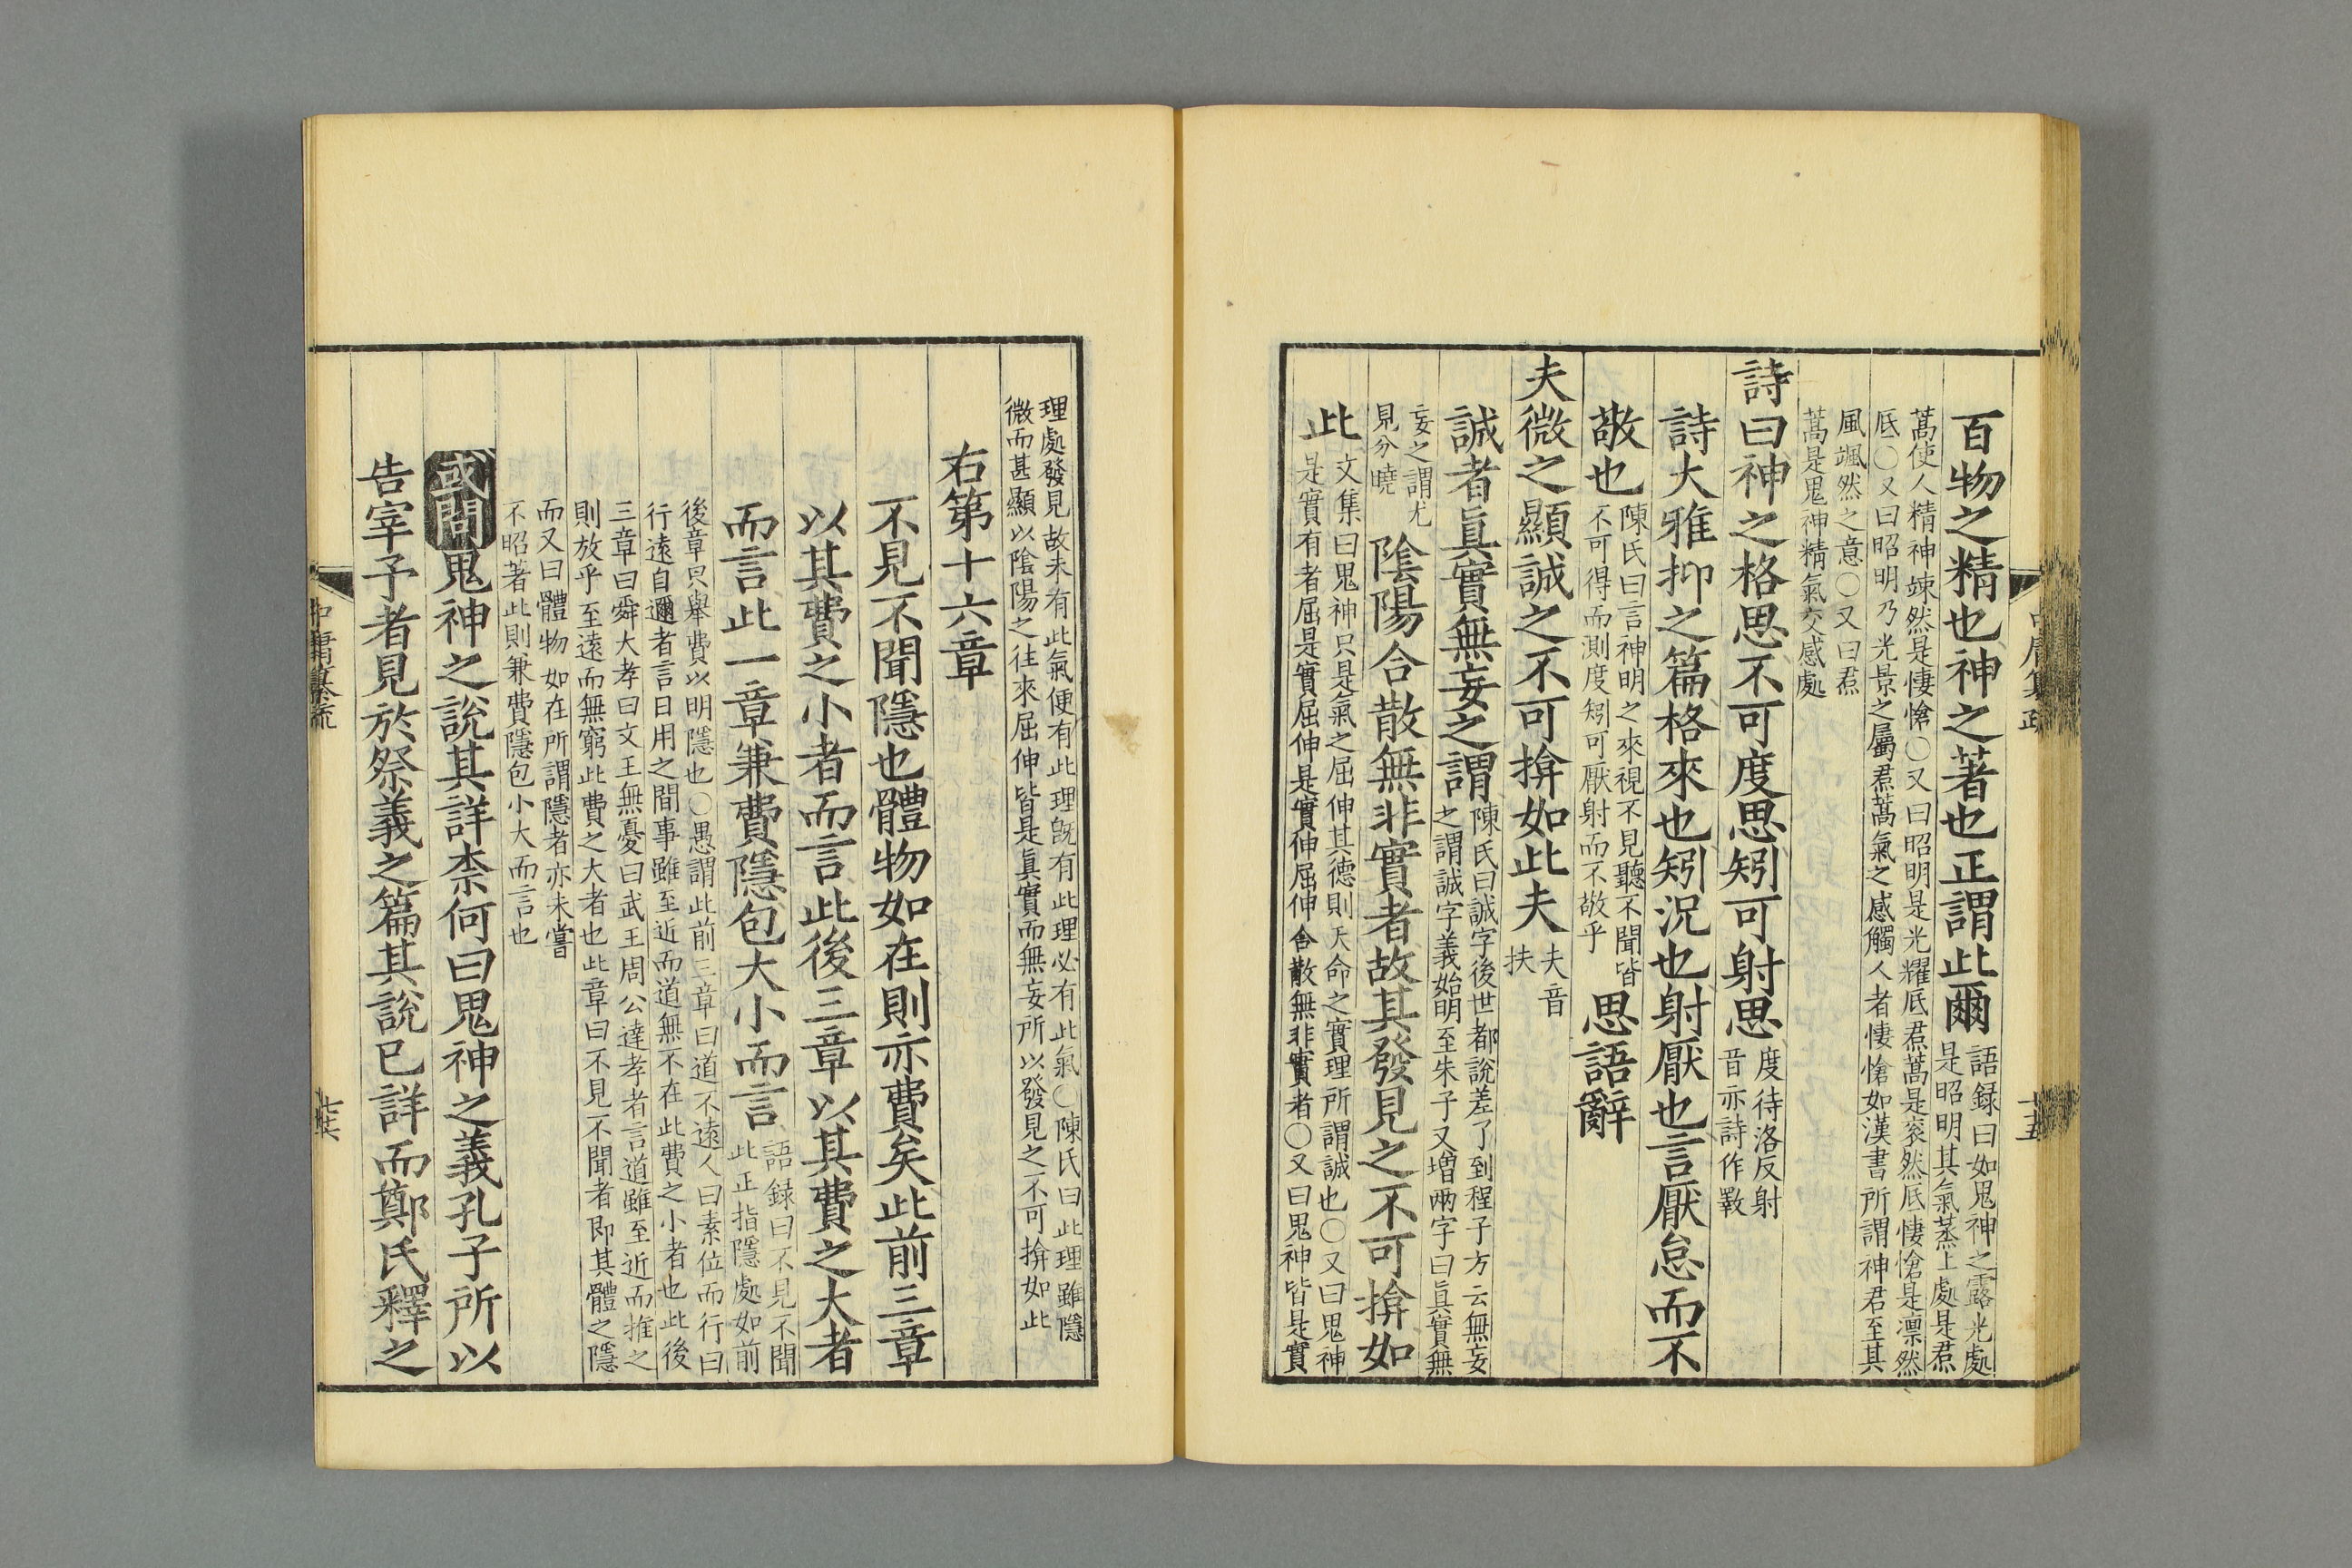 百物之精也神之著也正謂此爾
語録曰如鬼神之露光處
是昭明其氣蒸上處是焄
蒿使人精神竦然是悽愴○又曰昭明是光耀底焄蒿是衮然底悽愴是凛然
底○又曰昭明乃光景之屬焄蒿氣之感觸人者悽愴如漢書所謂神君至其
風颯然之意○又曰焄
蒿是鬼神精氣交感處
詩曰神之格思不可度思矧可射思
度待洛反射
音亦詩作斁
詩大雅抑之篇格來也矧況也射厭也言厭怠而不
敬也
陳氏曰言神明之來視不見聽不聞皆
不可得而測度矧可厭射而不敬乎
思語辭
夫微之顯誠之不可揜如此夫
夫音
扶
誠者眞實無妄之謂
陳氏曰誠字後世都說差了到程子方云無妄
之謂誠字義始明至朱子又增兩字曰眞實無
妄之謂尤
見分曉
陰陽合散無非實者故其發見之不可揜如
此
文集曰鬼神只是氣之屈伸其德則天命之實理所謂誠也○又曰鬼神
是實有者屈是實屈伸是實伸屈伸合散無非實者○又曰鬼神皆是實
理處發見故未有此氣便有此理旣有此理必有此氣○陳氏曰此理雖隱
微而甚顯以陰陽之往來屈伸皆是眞實而無妄所以發見之不可揜如此
右第十六章
不見不聞隱也體物如在則亦費矣此前三章
以其費之小者而言此後三章以其費之大者
而言此一章兼費隱包大小而言
語録曰不見不聞
此正指隱處如前
後章只舉費以明隱也○愚謂此前三章曰道不遠人曰素位而行曰
行遠自邇者言日用之間事雖至近而道無不在此費之小者也此後
三章曰舜大孝曰文王無憂曰武王周公達孝者言道雖至近而推之
則放乎至遠而無窮此費之大者也此章曰不見不聞者即其體之隱
而又曰體物如在所謂隱者亦未嘗
不昭著此則兼費隱包小大而言也
或問鬼神之說其詳柰何曰鬼神之義孔子所以
告宰予者見於祭義之篇其說已詳而鄭氏釋之
中庸纂疏